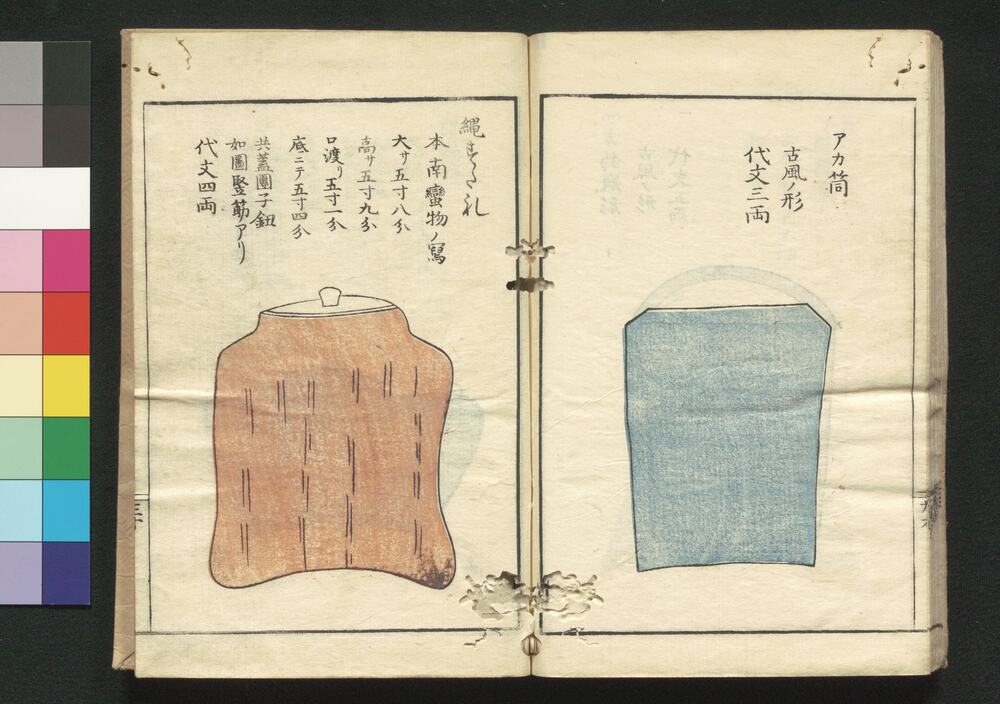 アカ筒
古風ノ形
代文三両
縄すだれ
本南蠻物ノ寫
大サ五寸八分
高サ五寸九分
口渡り五寸一分
底ニテ五寸四分
共蓋團子鈕
如圖竪筋アリ
代文四両